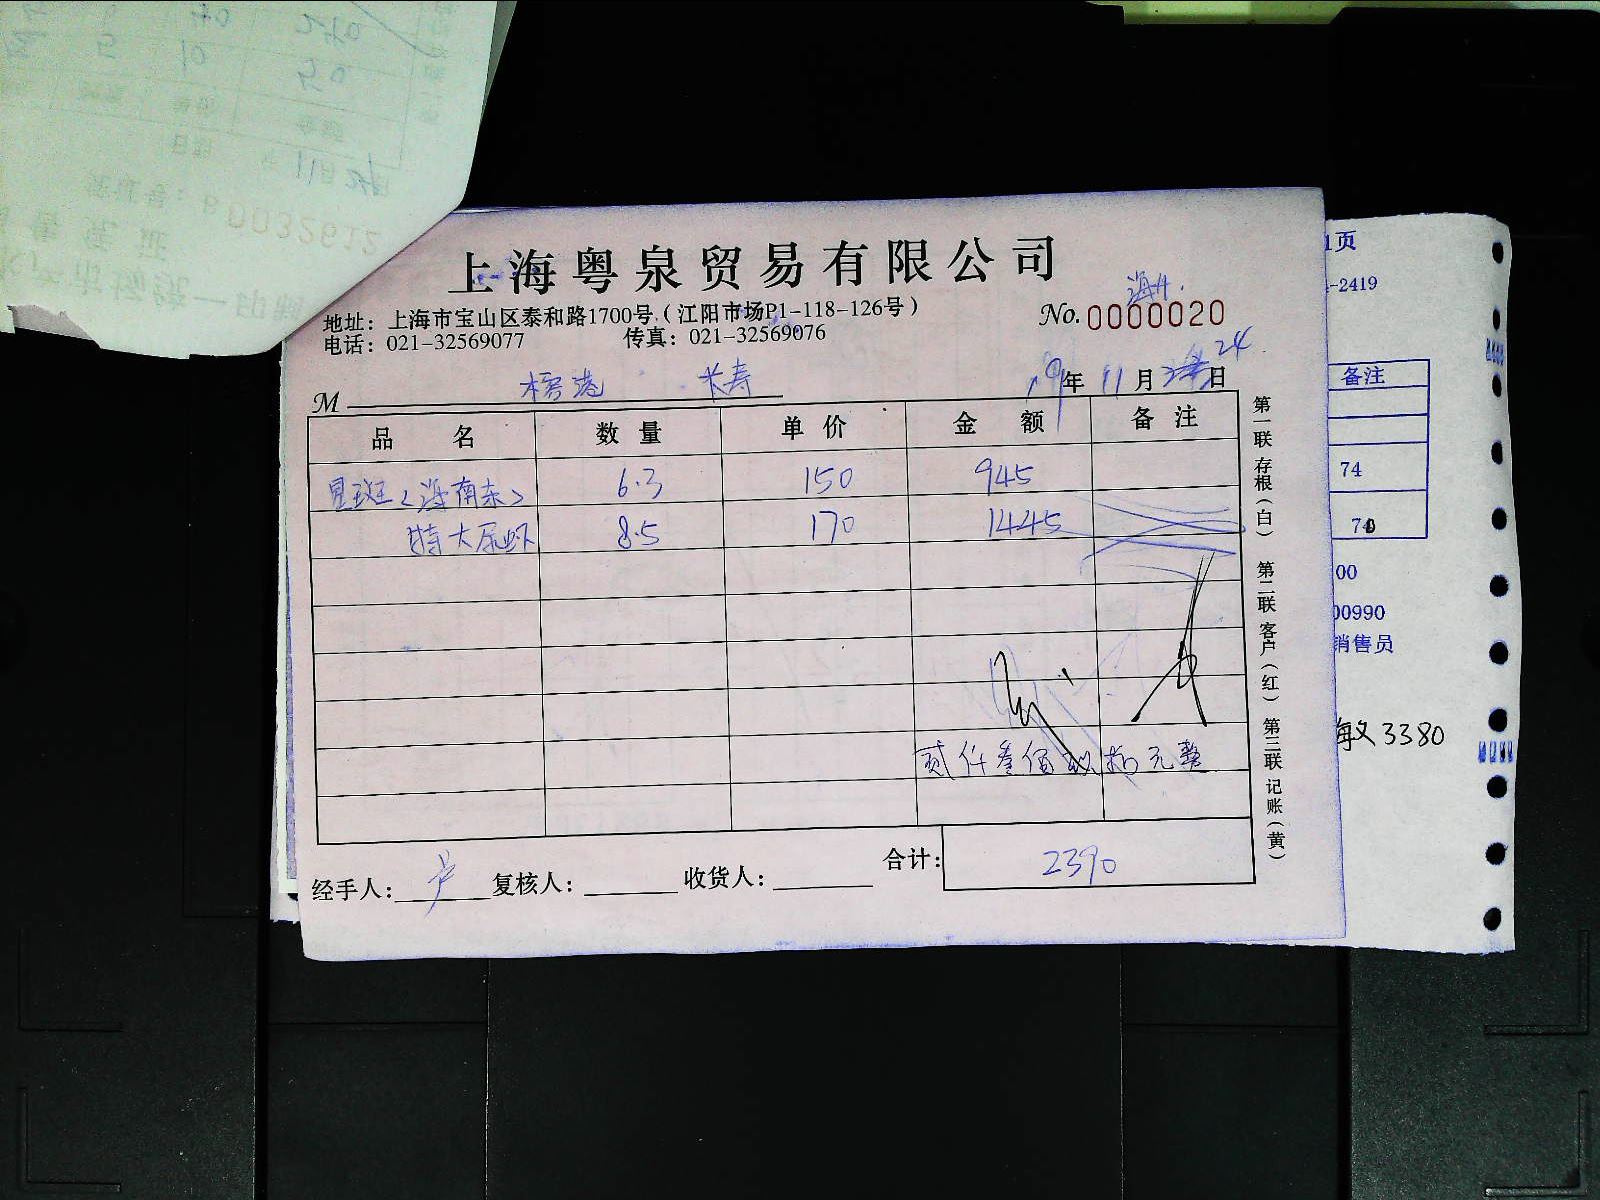 上海粤泉贸易有限公司
地址：上海市宝山区泰和路1700号（江阳市场P1-118-126号）
电话：021-32569077 传真：021-32569076
No. 0000020
M 长寿
19年 11月 24日
品名 数量 单价 金额 备注
星斑（海南东） 6.3 150 945
特大尿虾 8.5 170 1445
贰仟叁佰玖拾元整
合计： 2390
经手人： 卢 复核人： 收货人：
第一联 存根（白） 第二联 客户（红） 第三联 记账（黄）
1页
-2419
备注
74
00
00990
销售员
3380
0032612
日期 11月24日
50
240
10
5